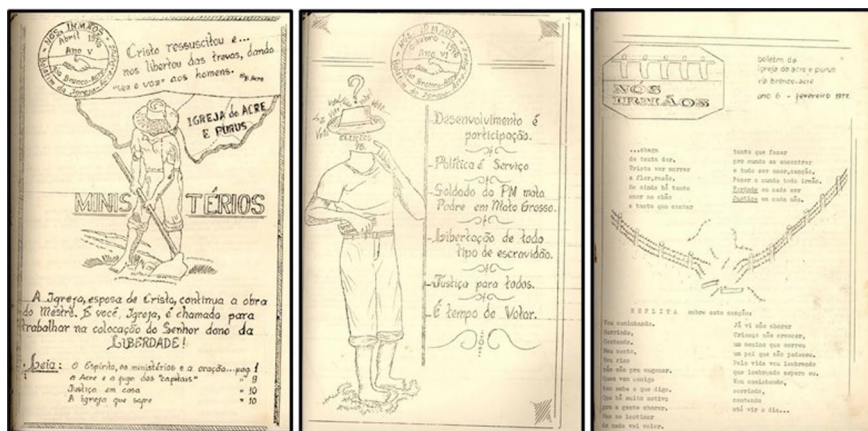 NÓS, IRMÃOS
Abril 1976
Ano V
Rio Branco-Acre
Boletim da Igreja Acre-Purus
Cristo ressuscitou e...
nos libertou das trevas, dando
"vez e voz" aos homens.
IGREJA do ACRE
E PURUS
MINISTÉRIOS
A Igreja, esposa de Cristo, continua a obra
do Mestre. E você, Igreja, é chamado para
trabalhar na colocação do Senhor dono da
LIBERDADE!
Leia: O Espírito, os ministérios e a oração...pag 1
o Acre e a fuga das "capitais" " 9
Justiça em casa " 10
A Igreja que sofre " 10
NÓS, IRMÃOS
Outubro - 1976
Ano VI
Rio Branco-Acre
?
ELEIÇÕES
76.
- Desenvolvimento é
participação.
- Política é Serviço
- Soldado da PM mata
Padre em Mato Grosso.
- Libertação de todo
tipo de escravidão.
- Justiça para todos.
- É tempo de Votar.
NÓS
IRMÃOS
boletim da
igreja do acre e purus
rio branco-acre
ano 6 - fevereiro 1977
...chega
de tanta dor.
Triste ver morrer
a flor,
Se ainda há tanto
amor no chão
e tanto que cantar
tanto que fazer
pro mundo se encontrar
e tudo ser amor,canção,
Fazer o mundo todo irmão.
em cada ser
Justiça em cada mão.
REFLITA sobre esta canção:
Vou caminhando.
Sorrindo,
Cantando.
Meu canto,
Meu riso
não são pra enganar.
Quem vem comigo
tem
Que há muito motivo
pra a gente chorar.
Mas se lastimar
de nada vai valer.
Já vi mãe chorar
Criança não crescer,
um menino que morreu
um pai que não
Pela vida vou lembrando
que lembrando espero eu.
Vou caminhando,
sorrindo,
cantando
até vir o dia...